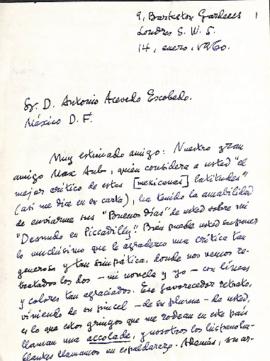 9, Barkston Gardens
Londres S. W. 5.
14, enero, 1960.
1
Sr. D. Antonio Acevedo Escobedo.
México D. F.
Muy estimado amigo: Nuestro gran
amigo Max Aub, quien considera a usted "el
mejor crítico de estas [mexicanas] latitudes"
(así me dice en su carta), ha tenido la amabilidad
de enviarme sus "Buenos días" de usted sobre mi
"Desnudo en Piccadilly". Bien puede usted suponer
lo muchísimo que le agradezco una crítica tan
generosa y tan simpática, donde nos vemos re-
tratados los dos - mi novela y yo - con líneas
y colores tan agraciados. Ese favorecedor retrato,
viniendo de su pincel - de su pluma - de usted,
es lo que estos gringos que me rodean en este país
llaman una accolade, y nosotros los hispanoha-
blantes llamamos un espaldarazo. Además, su ar-